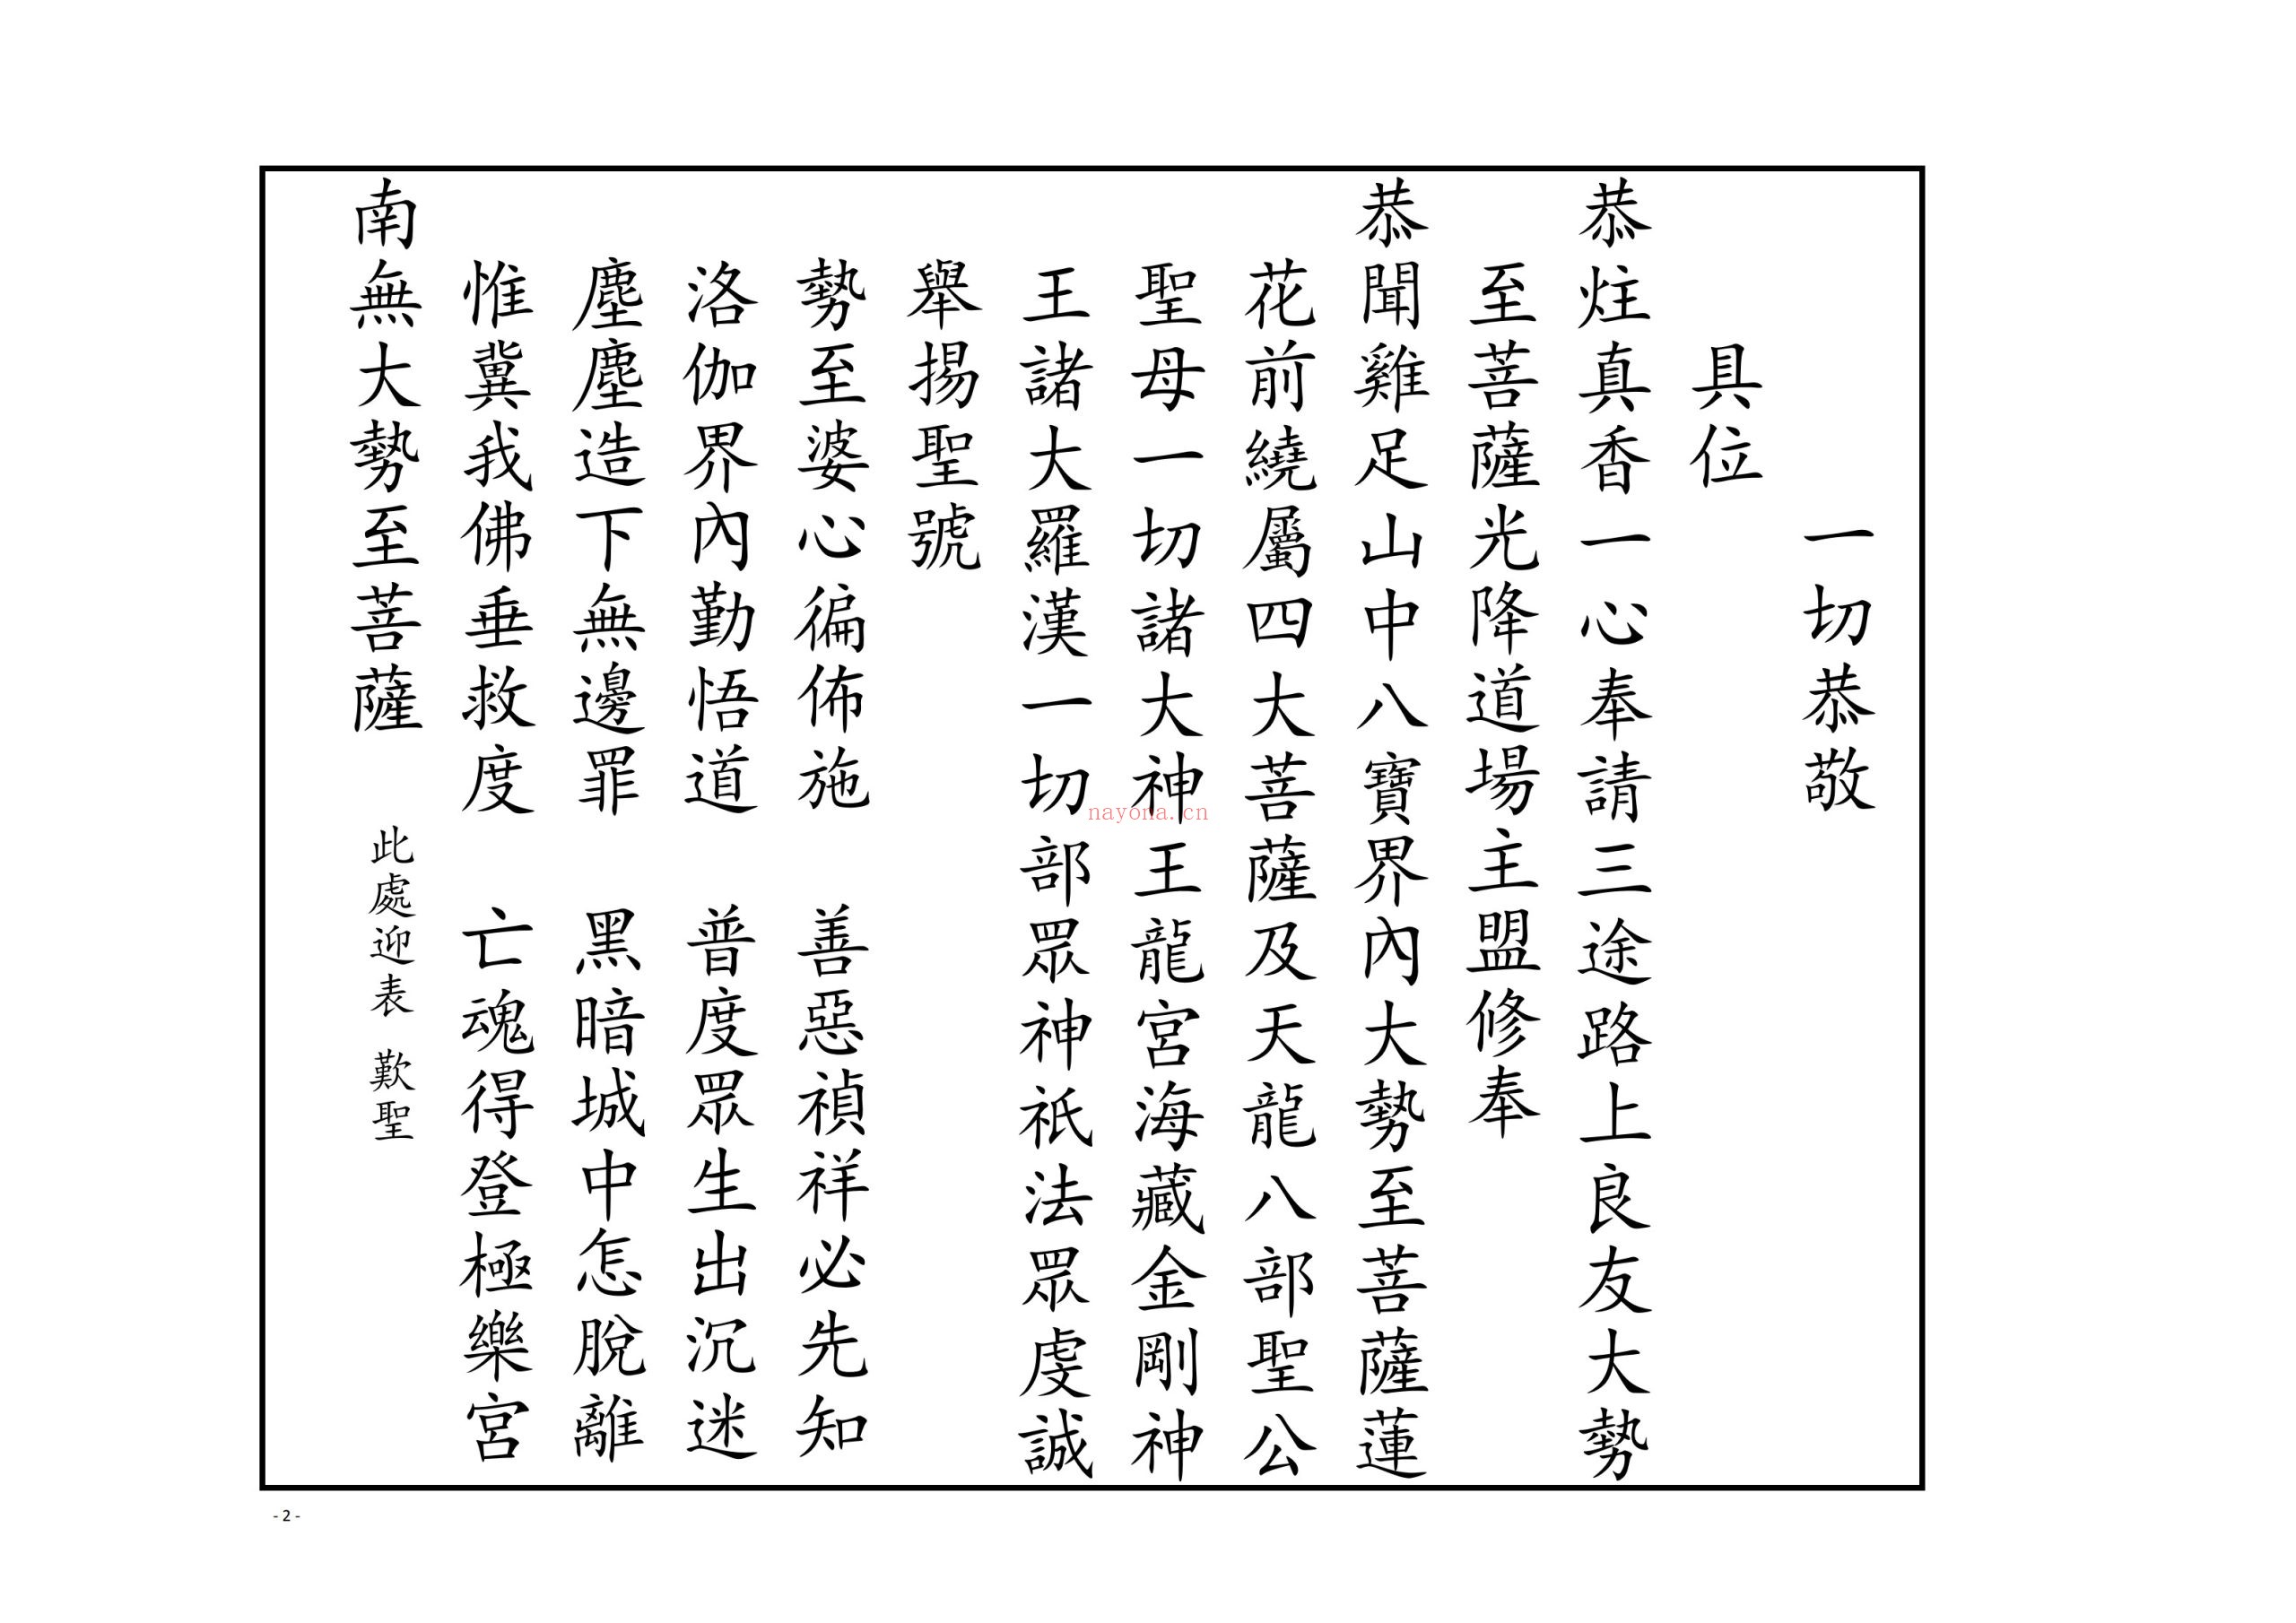 一切恭敬
具位
恭炷真香一心奉請三途路上良友大勢
至菩薩光降道場主盟修奉
恭聞雞足山中八寶界內大勢至菩薩蓮
花前繞屬四大菩薩及天龍八部聖公
聖母一切諸大神王龍宮海藏金剛神
王諸大羅漢一切部眾神祇法眾虔誠
舉揚聖號
勢至婆心徧佈施 善惡禎祥必先知
洛伽界內勤悟道 普度眾生出沉迷
塵塵造下無邊罪 黑暗城中怎脫離
惟冀我佛垂救度 亡魂得登極樂宮
南無大勢至菩薩 此處迎表 歎聖
nayona.cn
- 2 -